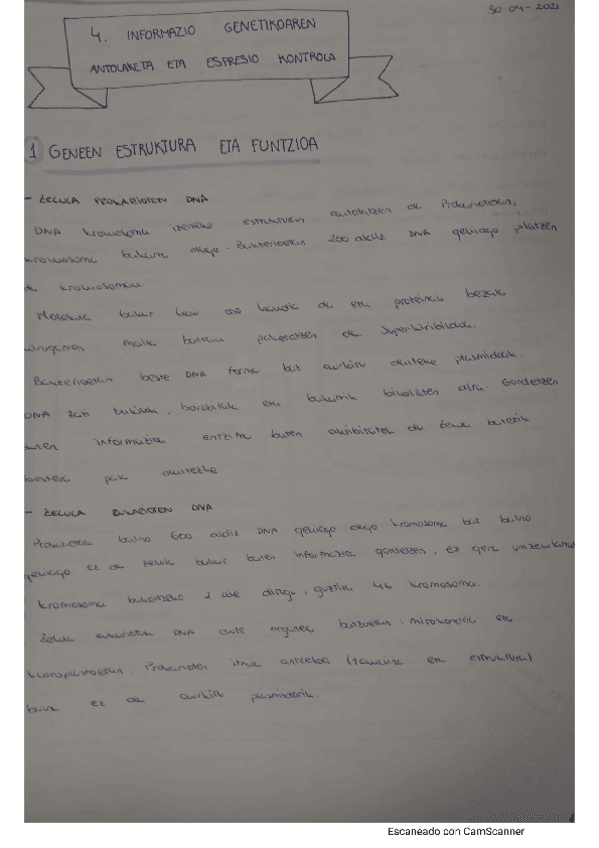 30-04-2021
4. INFORMAZIO GENETIKOAREN
ANTOLAKETA ETA ESPRESIO KONTROLA
1 GENEEN ESTRUKTURA ETA FUNTZIOA
- ZELULA PROKARIOTEN DNA
DNA kromosoma izeneko estrukturan antolatzen da. Prokarioteetan,
kromosoma bakarra dago. Bakterioetan 200 aldiz DNA gehiago
kromosoman
Molekula bakar hau oso handia da eta proteinak
maila batean paketatzen da. Superkiribildua.
Bakterioetan beste DNA forma bat aurkitu daiteke plasmidoak.
DNA zati txikiak, borobilak eta bakarrik bikoizten dira. Gordetzen
duten informazioa entzima baten da. Zelula batetik
bestera pasa daitezke.
- ZELULA EUKARIOTEN DNA
Prokariota baino 600 aldiz DNA gehiago dago. Kromosoma bat baino
gehiago. Ez da zelula bakar baten informazioa gordetzen, ez gera
kromosoma bakoitzeko 2 ale ditugu, guztira 46 kromosoma.
Zelula eukariotak DNA dute organulu batzuetan: mitokondria eta
kloroplastoetan. Prokarioten DNAren antzekoa (tamaina eta estruktura)
baina ez da aurkitu plasmidorik.
Escaneado con CamScanner